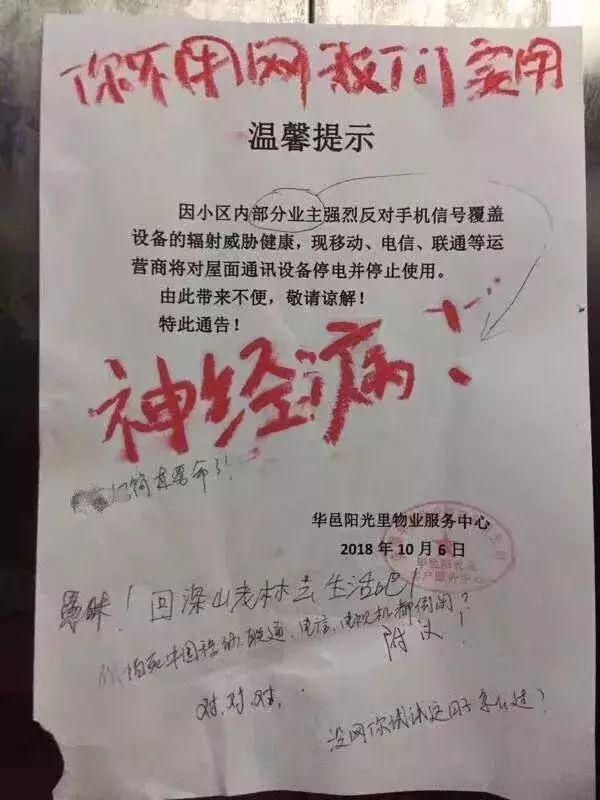 你不用网我们要用
温馨提示
因小区内部分业主强烈反对手机信号覆盖
设备的辐射威胁健康，现移动、电信、联通等运
营商将对屋面通讯设备停电并停止使用。
由此带来不便，敬请谅解！
特此通告！
神经病！
简直要命了！
华邑阳光里物业服务中心
2018年10月6日
华邑阳光里
客户服务中心
愚昧！回深山老林去生活吧！
你怕死中国移动、联通、电信、电视机都倒闭？
附议！
对、对、对、
没网你试试这日子怎么过？